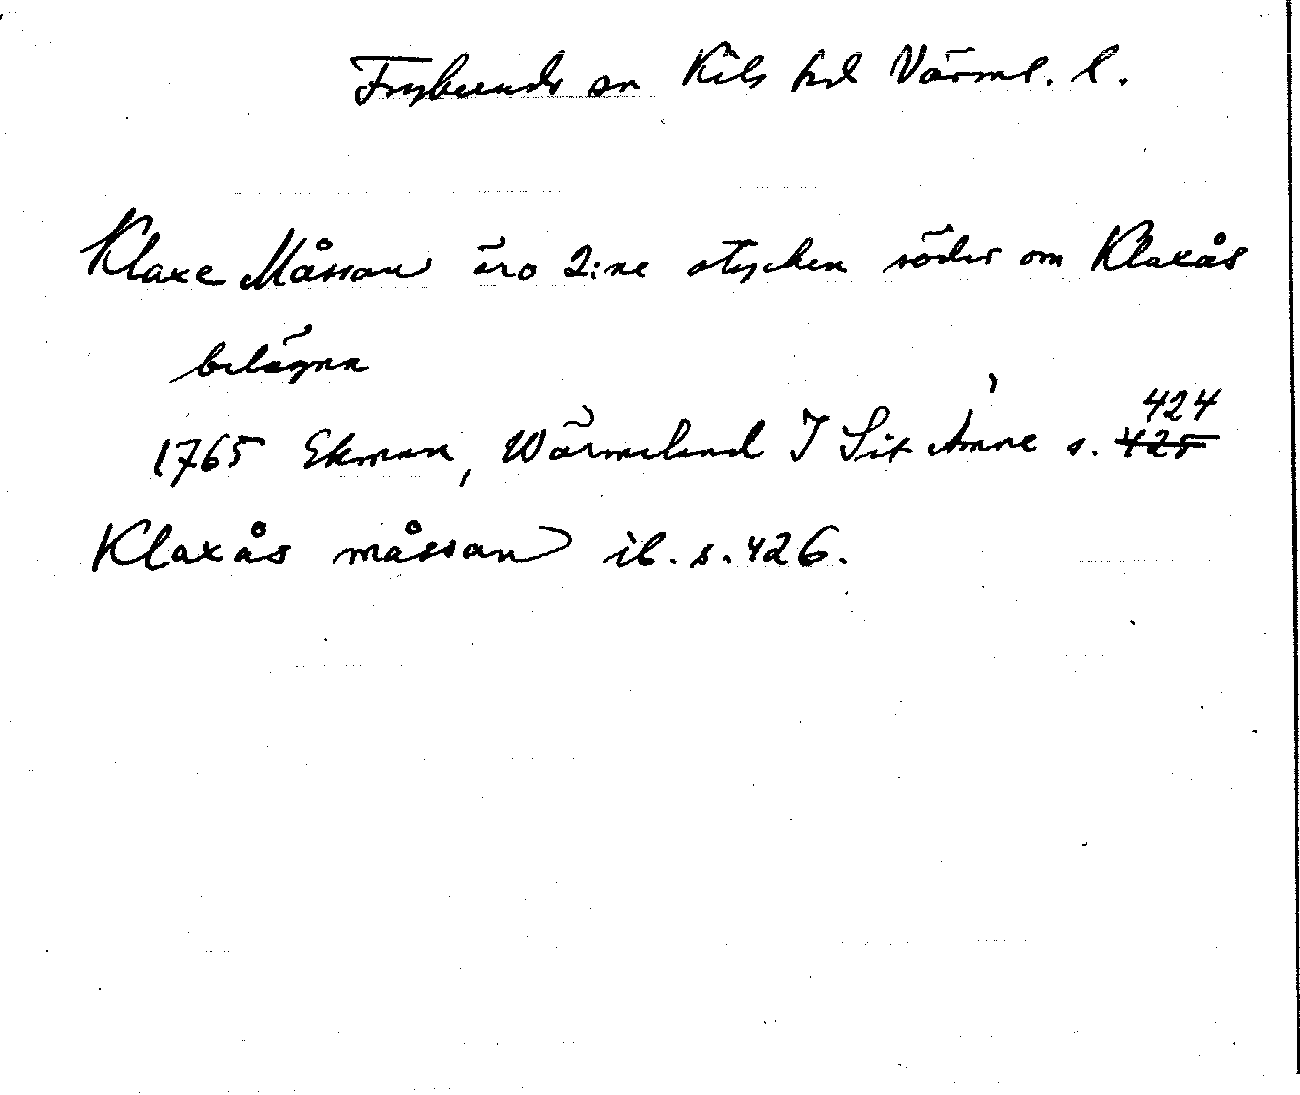 Frykerud sn Kils hd Värml. l.
Klaxe Måssan äro 2:ne stycken söder om Klaxås
belägna
1765 Ekman, Wärmeland I Sit Ämne s. 424 425
Klaxås måssan ib. s. 426.